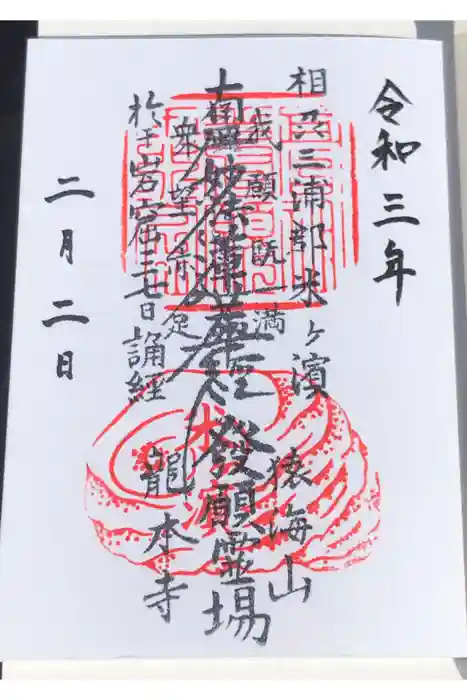 令和三年
相州三浦郡米ヶ濱
猿海山
我願既満
南無妙法蓮華経
發願霊場
衆望亦足
於于岩窟三七日誦経
龍本寺
二月二日